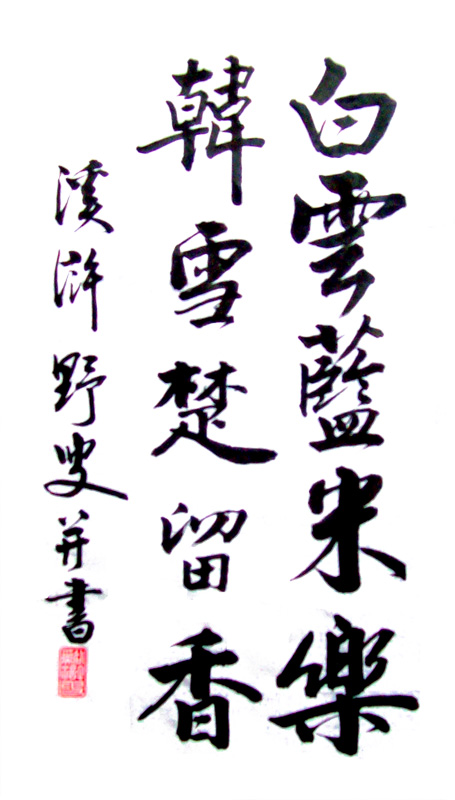 白雲藍米樂
韓雪楚留香
溪滸野叟并書